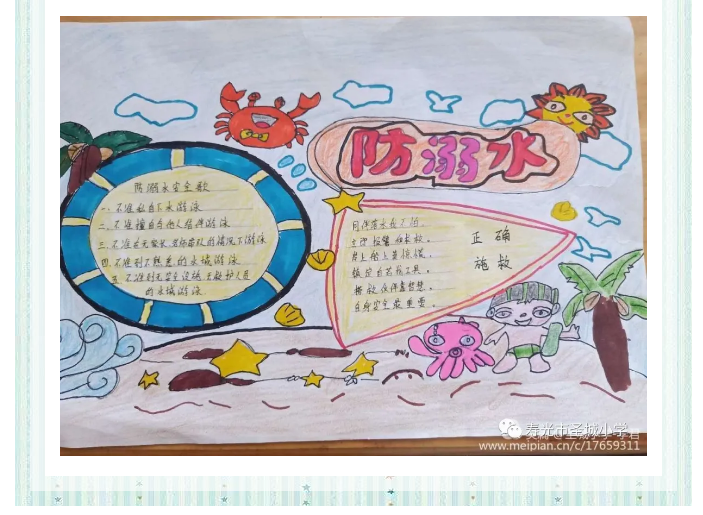 防溺水
防溺水安全歌
一.不准私自下水游泳
二.不准擅自与他人结伴游泳
三.不准在无家长
的情况下游泳
四.不准到不熟悉的水域游泳
五.不准到无安全设施、无救护人员
的水域游泳
同伴落水我不怕,
立即报警和求救。
岸上船上莫惊慌
自身安全最重要。
正确
施救
寿光市圣城小学
www.meipian.cn/c/17659311